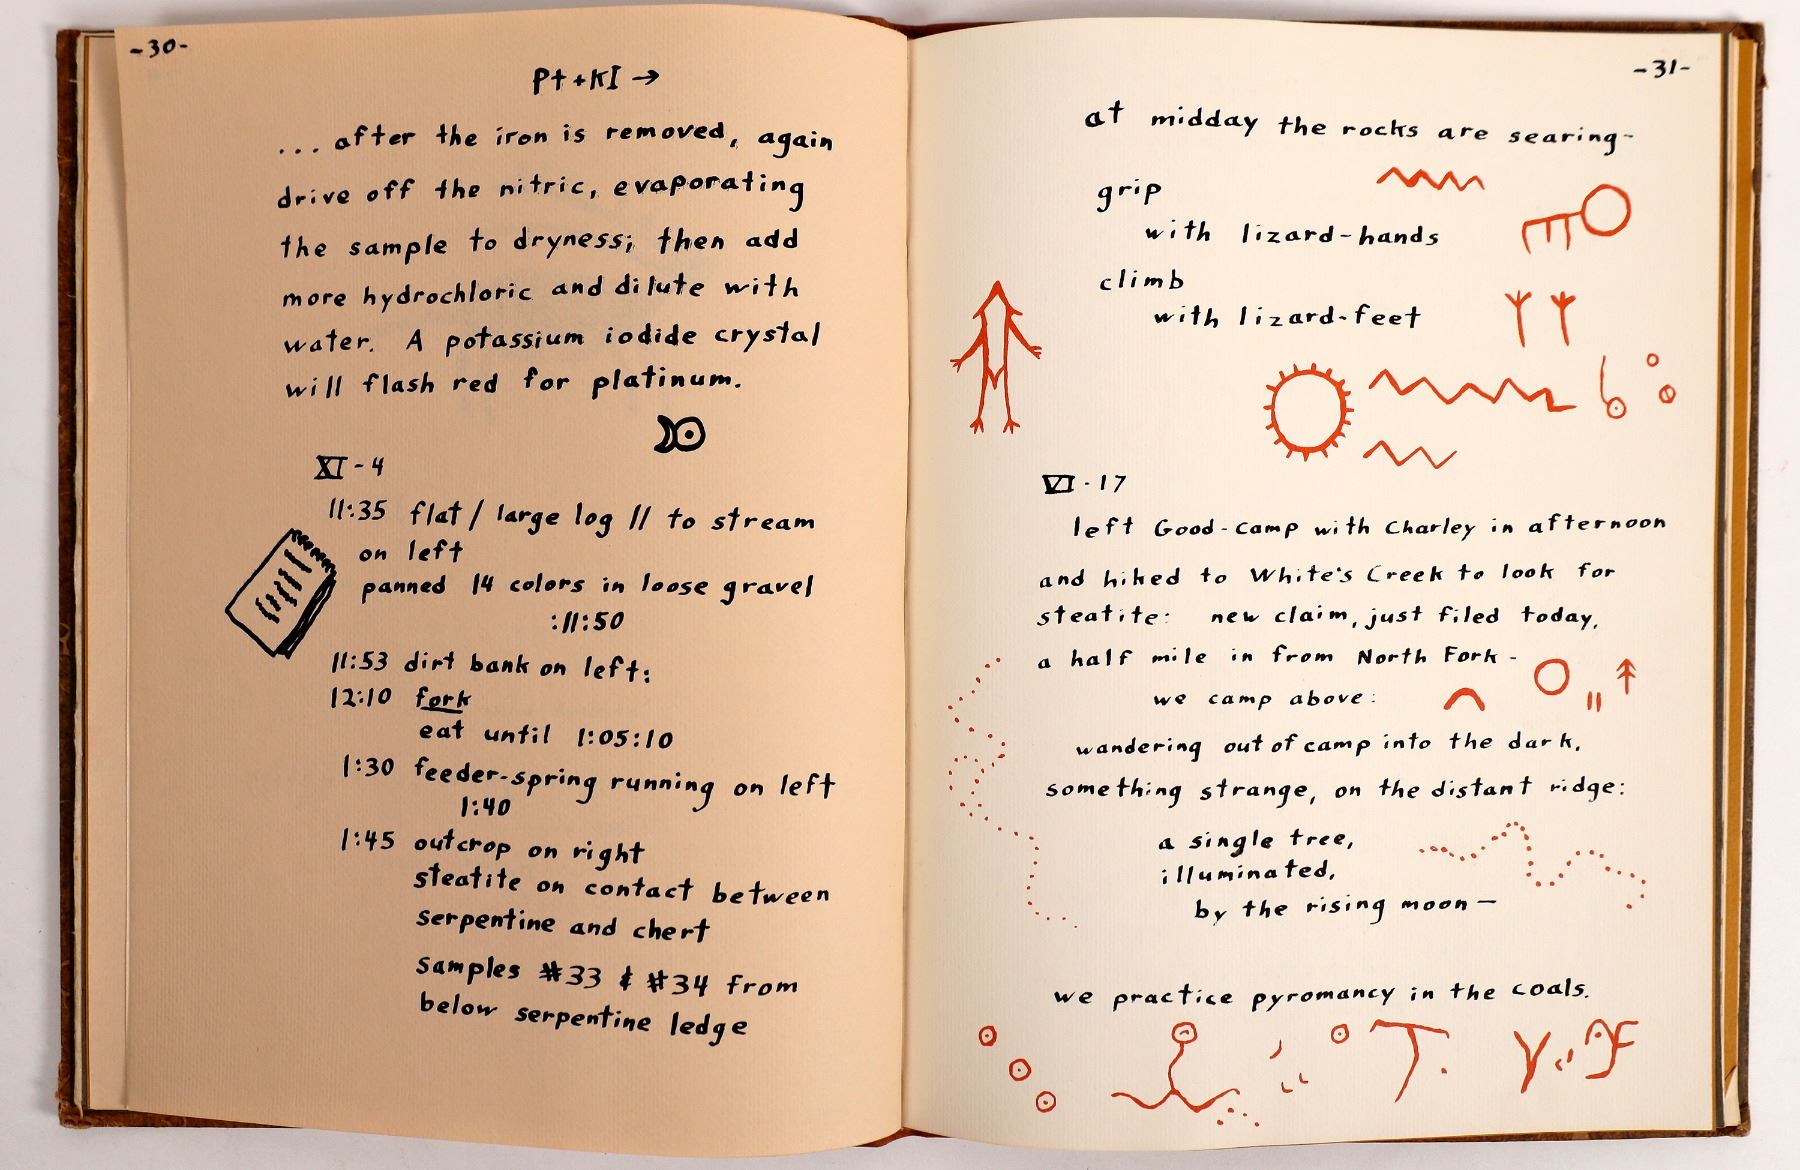 -30-
Pt + KI →
... after the iron is removed, again
drive off the nitric, evaporating
the sample to dryness; then add
more hydrochloric and dilute with
water. A potassium iodide crystal
will flash red for platinum.
XI - 4
11:35 flat / large log // to stream
on left
panned 14 colors in loose gravel
:11:50
11:53 dirt bank on left:
12:10 fork
eat until 1:05:10
1:30 feeder-spring running on left
1:40
1:45 outcrop on right
steatite on contact between
serpentine and chert
samples #33 & #34 from
below serpentine ledge
-31-
at midday the rocks are searing-
grip
with lizard-hands
climb
with lizard-feet
VI - 17
left Good-camp with Charley in afternoon
and hiked to White's Creek to look for
steatite: new claim, just filed today,
a half mile in from North Fork -
we camp above:
wandering out of camp into the dark,
something strange, on the distant ridge:
a single tree,
illuminated,
by the rising moon —
we practice pyromancy in the coals.